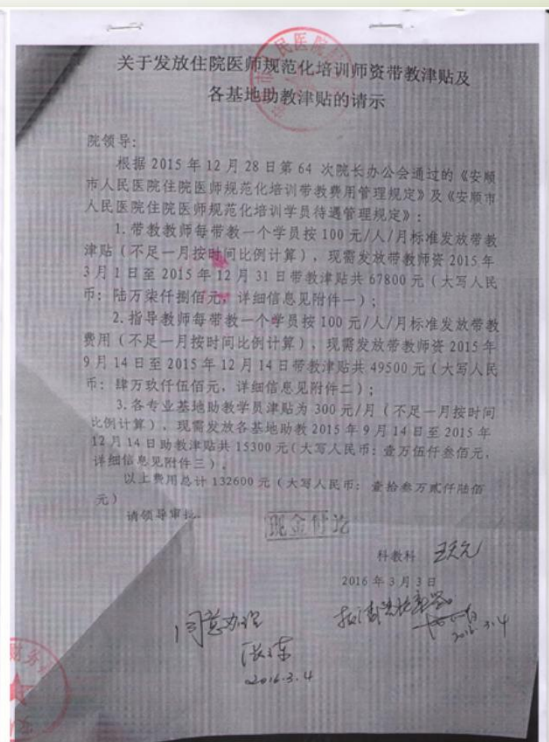 关于发放住院医师规范化培训师资带教津贴及
各基地助教津贴的请示
院领导:
根据 2015 年 12 月 28 日第 64 次院长办公会通过的《安顺
市人民医院住院医师规范化培训带教费用管理规定》及《安顺市
人民医院住院医师规范化培训学员待遇管理规定》:
1.带教教师每带教一个学员按 100 元/人/月标准发放带教
津贴(不足一月按时间比例计算),现需发放带教师资 2015 年
3 月 1 日至 2015 年 12 月 31 日带教津贴共 67800 元(大写人民
币:陆万柒仟捌佰元,详细信息见附件一);
2.指导教师每带教一个学员按 100 元/人/月标准发放带教
费用(不足一月按时间比例计算),现需发放带教师资 2015 年
9 月 14 日至 2015 年 12 月 14 日带教津贴共 49500 元(大写人民
币:肆万玖仟伍佰元,详细信息见附件二);
3.各专业基地助教学员津贴为 300 元/月(不足一月按时间
比例计算),现需发放各基地助教 2015 年 9 月 14 日至 2015 年
12 月 14 日助教津贴共 15300 元(大写人民币:壹万伍仟叁佰元,
详细信息见附件三)。
以上费用总计 132600 元(大写人民币:壹拾叁万贰仟陆佰
元)
请领导审批
现金付讫
科教科
2016 年 3 月 3 日
2016.3.4
同意办理
2016.3.4